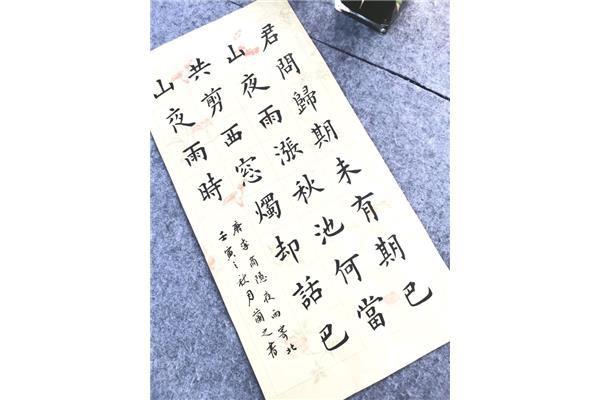 君問歸期未有期巴
山夜雨漲秋池何當
共剪西窓燭却話巴
山夜雨時
唐李商隐夜雨寄北
壬寅之秋月蘭之書